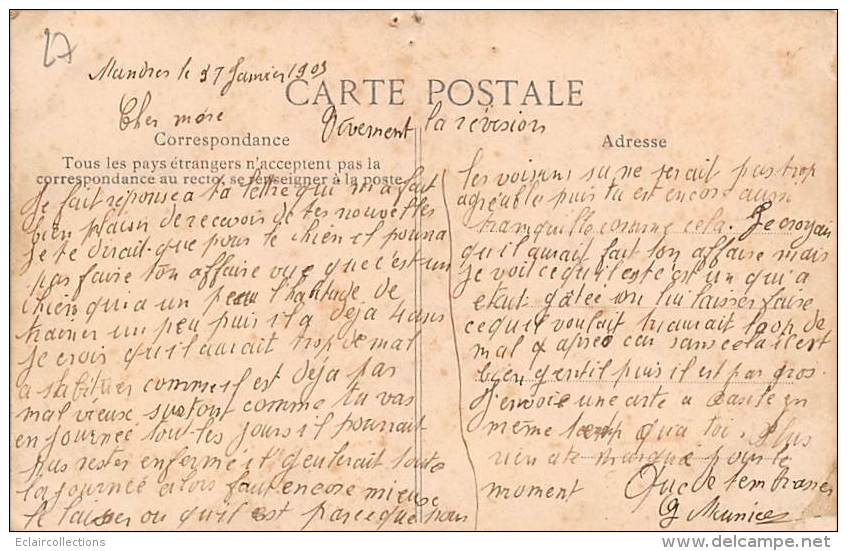 27
Mandres le 27 Janvier 1903
CARTE POSTALE
Cher mère Vivement la révision
Correspondance
Adresse
Tous les pays étrangers n'acceptent pas la
correspondance au recto, se renseigner à la poste
Je fait réponse a ta lettre qui m'a fait
bien plaisir de recevoir de tes nouvelles
je te dirait que pour le chien il pourra
pas faire ton affaire vue que c'est un
chien qui a un peu l'habitude de
trainer un peu puis il a déja 4 ans
Je crois qu'il aurait trop de mal
a shabituer comme il est déja pas
mal vieux surtout comme tu vas
en journée tout les jours il pourrait
pas rester enfermé il geulerait toute
la journée alors faut encore mieux
le laisser ou qu'il est parce que pour
les voisins sa ne serait pas trop
agréable puis tu est encore aussi
tranquille comme cela. Je croyais
qu'il aurait fait ton affaire mais
je voit ce qu'il est c'est un qui a
etait gatée on lui laisser faire
ce qu'il voulait tu aurait trop de
mal après car sans cela il est
bien gentil puis il est pas gros.
J'envoie une carte a en
même temp qua toi. Plus
rien a te marqué pour le
moment
Eclaircollections
delcampe.net